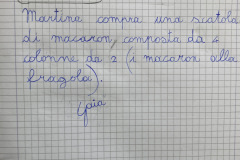 Martina compra una scatola
di macaron, composta da 4
colonne da 2 (i macaron alla
fragola).
Gaia